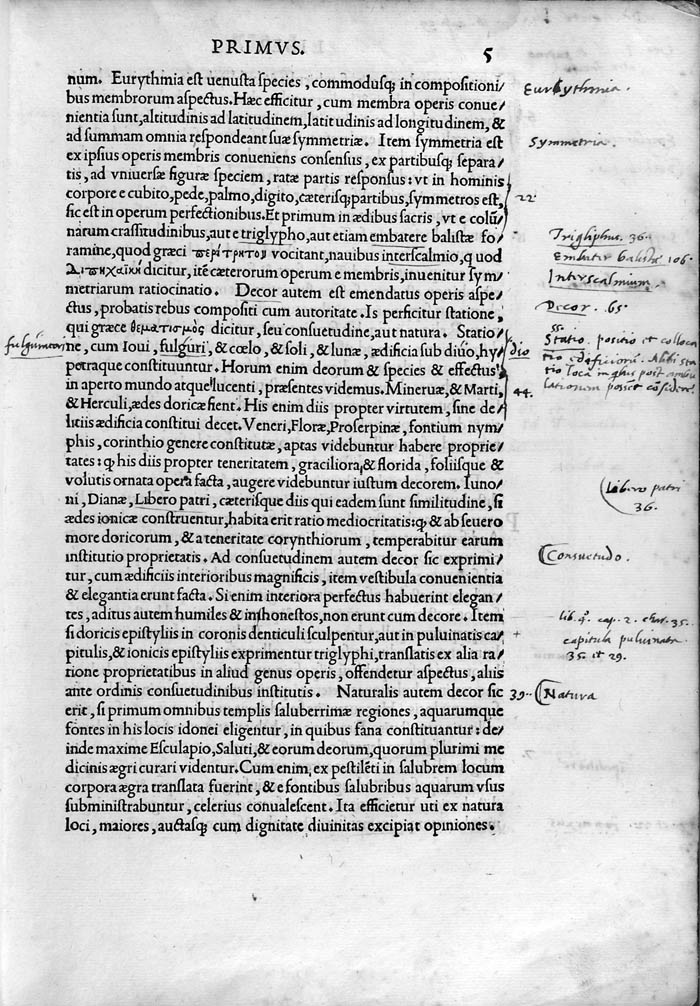 PRIMVS.
5
num. Eurythmia est uenusta species, commodusq; in compositioni/
bus membrorum aspectus. Hæc efficitur, cum membra operis conue/
nientia sunt, altitudinis ad latitudinem, latitudinis ad longitudinem, &
ad summam omnia respondeant suæ symmetriæ. Item symmetria est
ex ipsius operis membris conueniens consensus, ex partibusq; separa/
tis, ad vniuersæ figuræ speciem, ratæ partis responsus: vt in hominis
corpore e cubito, pede, palmo, digito, cæterisq; partibus, symmetros est,
sic est in operum perfectionibus. Et primum in ædibus sacris, vt e colũ/
narum crassitudinibus, aut e triglypho, aut etiam embatere balistæ fo/
ramine, quod græci περίτρητον vocitant, nauibus interscalmio, quod
διπηχαϊκή dicitur, itẽ cæterorum operum e membris, inuenitur sym/
metriarum ratiocinatio. Decor autem est emendatus operis aspe/
ctus, probatis rebus compositi cum autoritate. Is perficitur statione,
qui græce θεματισμὸς dicitur, seu consuetudine, aut natura. Statio/
ne, cum Ioui, fulguri, & cœlo, & soli, & lunæ, ædificia sub diuo, hy/
pætraque constituuntur. Horum enim deorum & species & effectus
in aperto mundo atque lucenti, præsentes videmus. Mineruæ, & Marti,
& Herculi, ædes doricæ fient. His enim diis propter virtutem, sine de/
litiis ædificia constitui decet. Veneri, Floræ, Proserpinæ, fontium nym/
phis, corinthio genere constitutæ, aptas videbuntur habere proprie/
tates: ꝙ his diis propter teneritatem, graciliora, & florida, foliisque &
volutis ornata opera facta, augere videbuntur iustum decorem. Iuno/
ni, Dianæ, Libero patri, cæterisque diis qui eadem sunt similitudine, si
ædes ionicæ construentur, habita erit ratio mediocritatis: ꝙ & ab seuero
more doricorum, & a teneritate corynthiorum, temperabitur earum
institutio proprietatis. Ad consuetudinem autem decor sic exprimi/
tur, cum ædificiis interioribus magnificis, item vestibula conuenientia
& elegantia erunt facta. Si enim interiora perfectus habuerint elegan/
tes, aditus autem humiles & inhonestos, non erunt cum decore. Item
si doricis epistyliis in coronis denticuli sculpentur, aut in puluinatis ca/
pitulis, & ionicis epistyliis exprimentur triglyphi, translatis ex alia ra/
tione proprietatibus in aliud genus operis, offendetur aspectus, aliis
ante ordinis consuetudinibus institutis. Naturalis autem decor sic
erit, si primum omnibus templis saluberrimæ regiones, aquarumque
fontes in his locis idonei eligentur, in quibus fana constituantur: de/
inde maxime Esculapio, Saluti, & eorum deorum, quorum plurimi me
dicinis ægri curari videntur. Cum enim, ex pestilẽti in salubrem locum
corpora ægra translata fuerint, & e fontibus salubribus aquarum vsus
subministrabuntur, celerius conualescent. Ita efficietur uti ex natura
loci, maiores, auctasq; cum dignitate diuinitas excipiat opiniones.
Eurythmia.
Symmetria.
22
Trigliphus. 36.
Embater balistæ 106.
Interscalmium.
Decor. 65.
Statio. positio et colloca
tio ędificiorũ. Alibi sta
tio loca in quibus post ambu
lationem possent cõsidere
dio
44.
(Libero patri
36.
(Consuetudo.
lib. 4. cap. 2. char. 35.
capitula puluinata
35. et 29.
39. (Natura